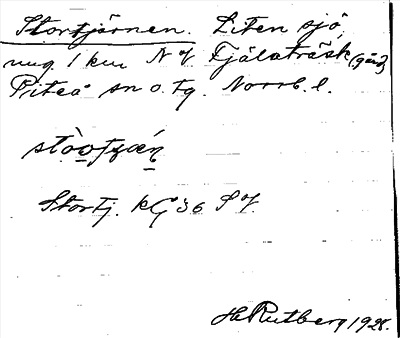 Stortjärnen. Liten sjö,
ung. 1 km N of Fjälaträsk (gård)
Piteå sn o. tg. Norrb. l.
Stortj. kG 36 S of.
H Rutberg 1928.